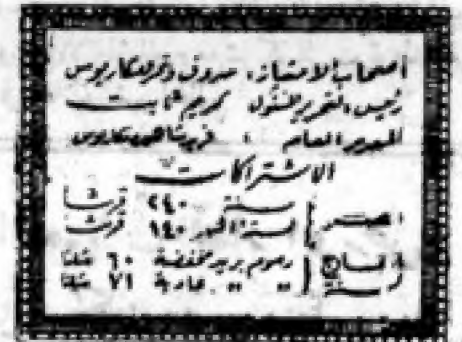 أصحاب الامتياز: صروف ونمر ومكاريوس
رئيس التحرير المسئول كريم ثابت
المدير العام : فريد شاهين مكاريوس
الاشتراكات
مصر سنة ٢٤٠ قرشا
لستة أشهر ١٤٠ قرشا
الخارج لسنة رسوم بريد مخفضة ٦٠ شلنا
" " عادية ٧١ شلنا